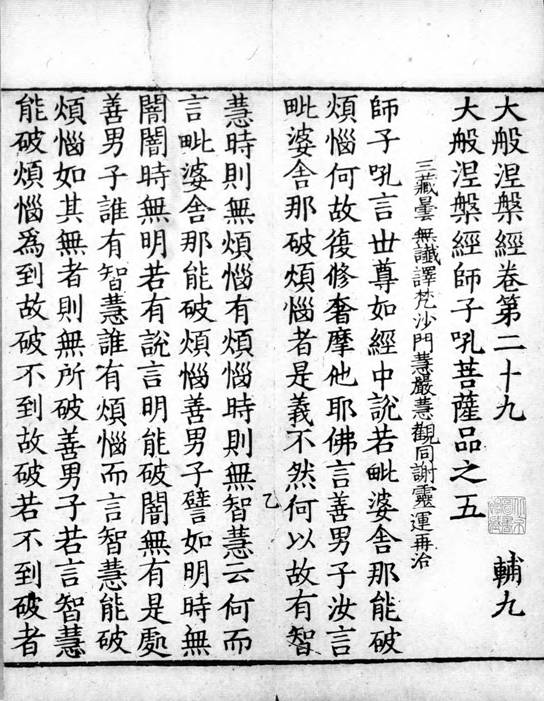 大般涅槃經卷第二十九 輔九
大般涅槃經師子吼菩薩品之五
三藏曇無讖譯梵沙門慧嚴慧觀同謝靈運再治
師子吼言世尊如經中說若毗婆舍那能破
煩惱何故復修奢摩他耶佛言善男子汝言
毗婆舍那破煩惱者是義不然何以故有智
乙
慧時則無煩惱有煩惱時則無智慧云何而
言毗婆舍那能破煩惱善男子譬如明時無
闇闇時無明若有說言明能破闇無有是處
善男子誰有智慧誰有煩惱而言智慧能破
煩惱如其無者則無所破善男子若言智慧
能破煩惱為到故破不到故破若不到破者